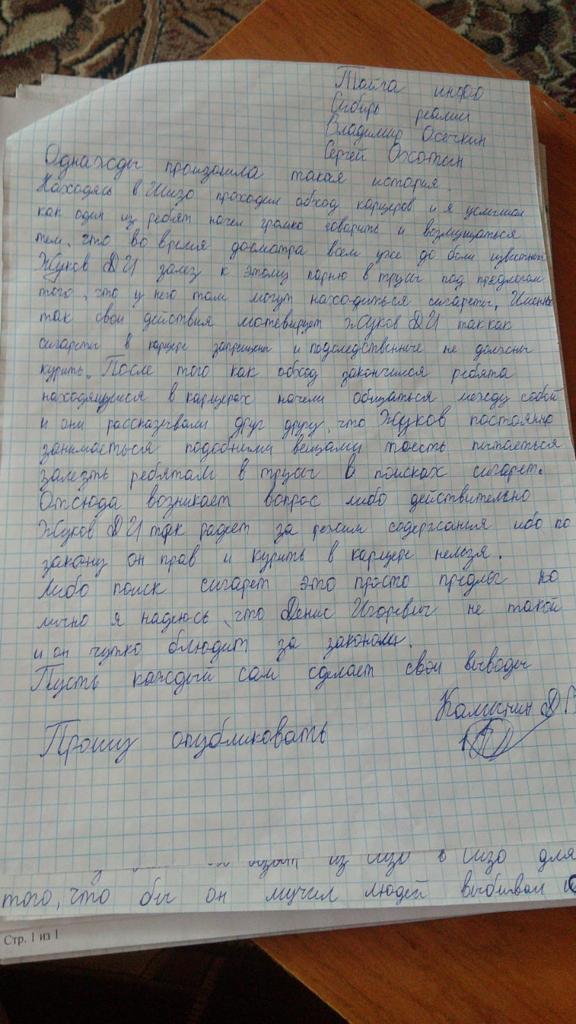 Тайга инфо
Сибирь реалии
Владимир Осечкин
Сергей Охотин
Однажды произошла такая история.
Находясь в Шизо проходил обход карцеров и я услышал
как один из ребят начел громко говорить и возмущаться
тем, что во время досмотра всем уже до боли известный
Жуков ДИ залез к этому парню в трусы под предлогом
того, что у него там могут находиться сигареты, Именно
так свои действия мотевирует Жуков ДИ так как
сигареты в карцере запрещены и подследственные не должны
курить. После того как обход закончился ребята
находящиеся в карцерах начели общаться между собой
и они рассказывали друг другу, что Жуков постоянно
занимаеться подобными вещами тоесть пытается
залезть ребятам в трусы в поисках сигарет.
Отсюда возникает вопрос либо действительно
Жуков ДИ так радеет за режим содержания ибо по
закону он прав и курить в карцере нельзя.
Либо поиск сигарет это просто предлог но
лично я надеюсь, что Денис Игоревич не такой
и он чутко блюдит за законом.
Пусть каждый сам сделает свои выводы
Калынин Д
Прошу опубликовать
из Сизо в Сизо для
того, что бы он мучил людей выбивал
Стр. 1 из 1